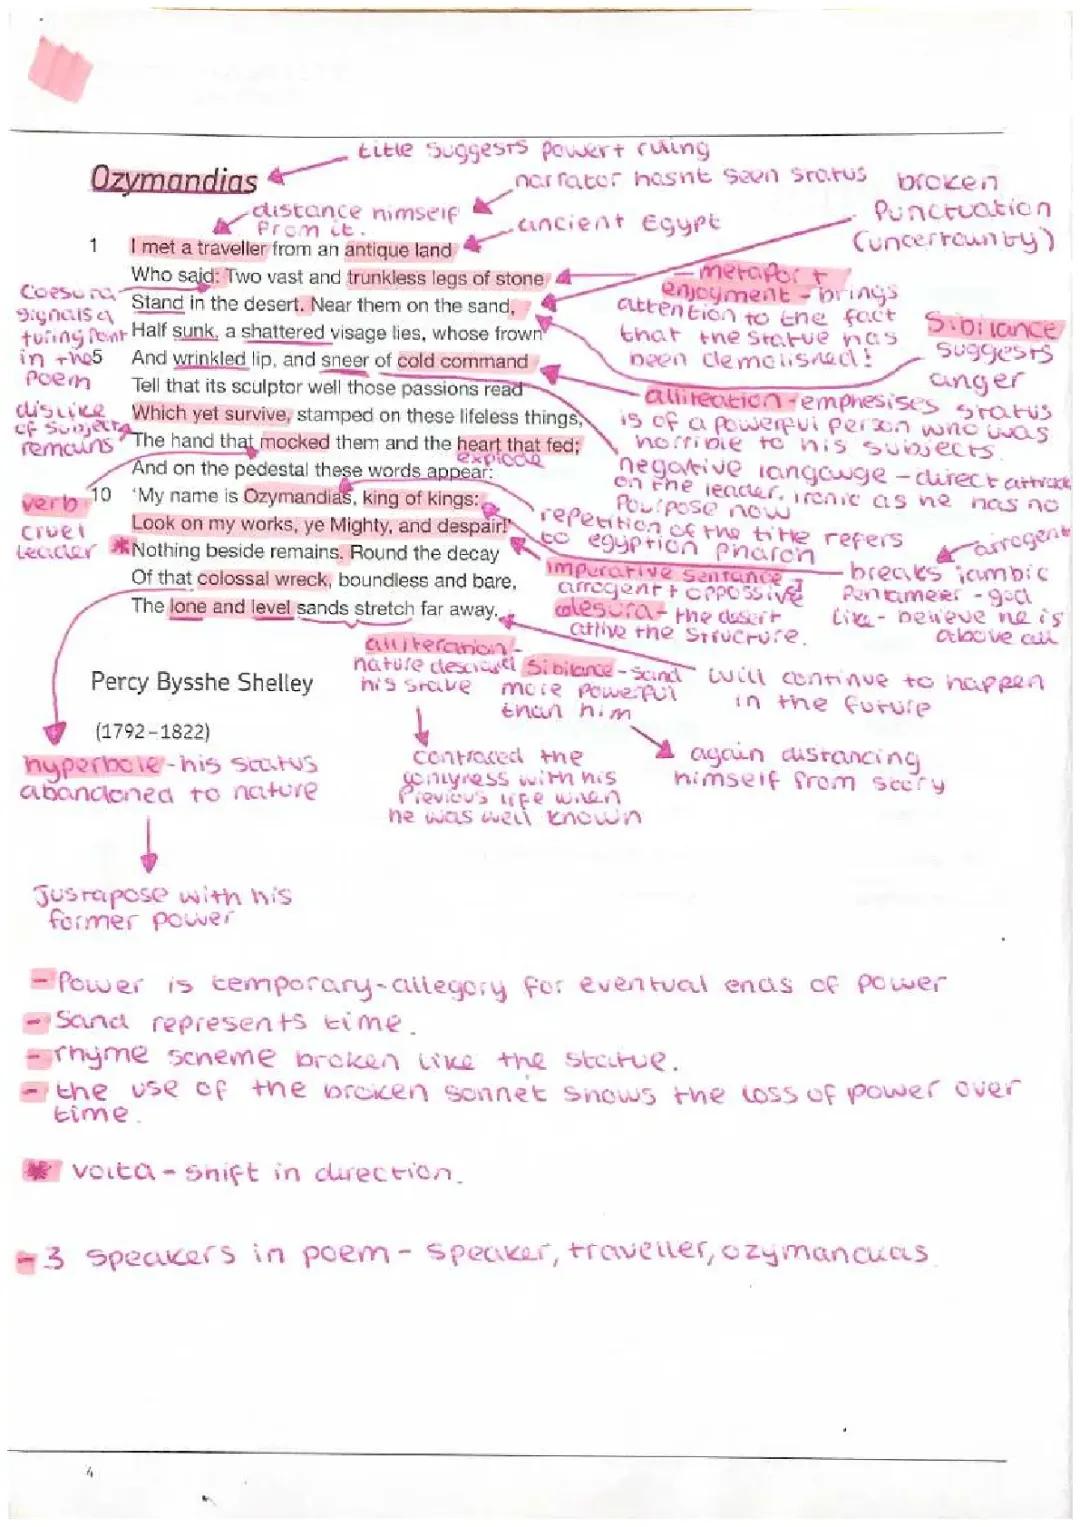 title suggests power + ruling
Ozymandias
narrator hasnt seen status
broken
Punctuation
(uncertainty)
distance himself
from it.
ancient Egypt
1 I met a traveller from an antique land
Who said: Two vast and trunkless legs of stone
Stand in the desert. Near them on the sand,
Half sunk, a shattered visage lies, whose frown
5 And wrinkled lip, and sneer of cold command
Tell that its sculptor well those passions read
Which yet survive, stamped on these lifeless things,
The hand that mocked them and the heart that fed;
And on the pedestal these words appear:
10 'My name is Ozymandias, king of kings:
Look on my works, ye Mighty, and despair!'
*Nothing beside remains. Round the decay
Of that colossal wreck, boundless and bare,
The lone and level sands stretch far away.
Coesura
signals a
turing point
in the
Poem
dislike
of subjects
remains
verb
cruel
leader
metaphor +
enjoyment - brings
attention to the fact
that the statue has
been demolished!
Sibilance
suggests
anger
alliteation - emphesises status
is of a powerful person who was
horrible to his subjects.
negative langauge - direct attack
on the leader. ironic as he has no
Pourpose now
explode
repetition of the title refers
to egyption pharoh
arrogent
imperative sentance
arrogent + oppossive
breaks iambic
Pentameter - god
like - believe he is
above all
colesura - the desert
outlive the structure.
alliteration -
nature destroyed
his statue
Sibilance - sand
more powerful
than him
will continue to happen
in the future
again distancing
himself from story
Percy Bysshe Shelley
(1792–1822)
hyperbole - his status
abandoned to nature
contraced the
with his
Previous life when
he was well known
Justapose with his
former power
- Power is temporary - allegory for eventual ends of power
- Sand represents time.
- rhyme scheme broken like the statue.
- the use of the broken sonnet shows the loss of power over
time.
* volta - shift in direction.
- 3 speakers in poem - speaker, traveller, ozymandias
4